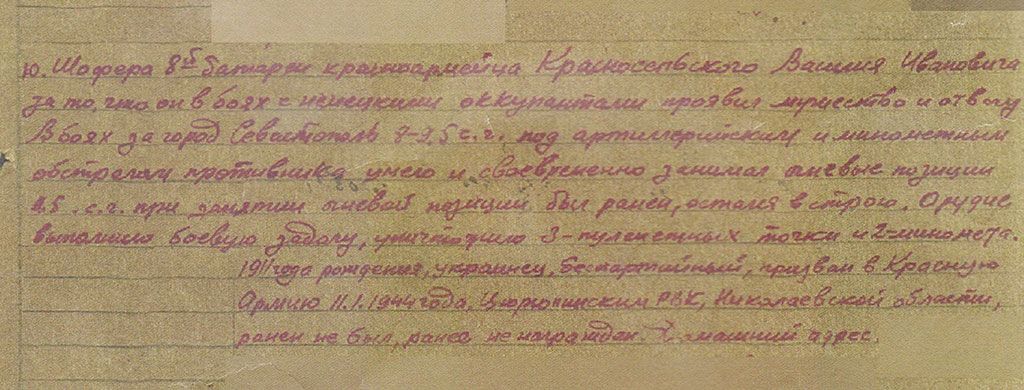 10. Шофера 8ой батареи красноармейца Красносельского Василия Ивановича
за то, что он в боях с немецкими оккупантами проявил мужество и отвагу
В боях за город Севастополь 7-9,5 с.г. под артиллерийским и минометным
обстрелам противника умело и своевременно занимал огневые позиции
5. с.г. при занятии огневой позиции был ранен, остался в строю. Орудие
выполнило боевую задачу, уничтожило 3-пулеметных точки и 2-миномета.
1911 года рождения, украинец, беспартийный, призван в Красную
Армию 11.1.1944 года, Цюрупинским РВК, Николаевской области,
ранен не был, ранее не награжден. Домашний адрес.